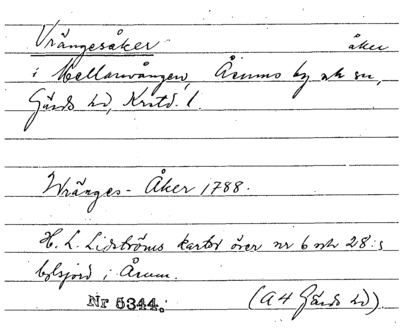 Vrängesåker åker
i Mellanvången, Årums by och sn,
Gärds hd, Kristd. l.
Wränges-Åker 1788.
H. L. Lidströms kartor över nr 6 och 28:s
bolsjord i Årum.
Nr 5344. (A 4 Gärds hd)